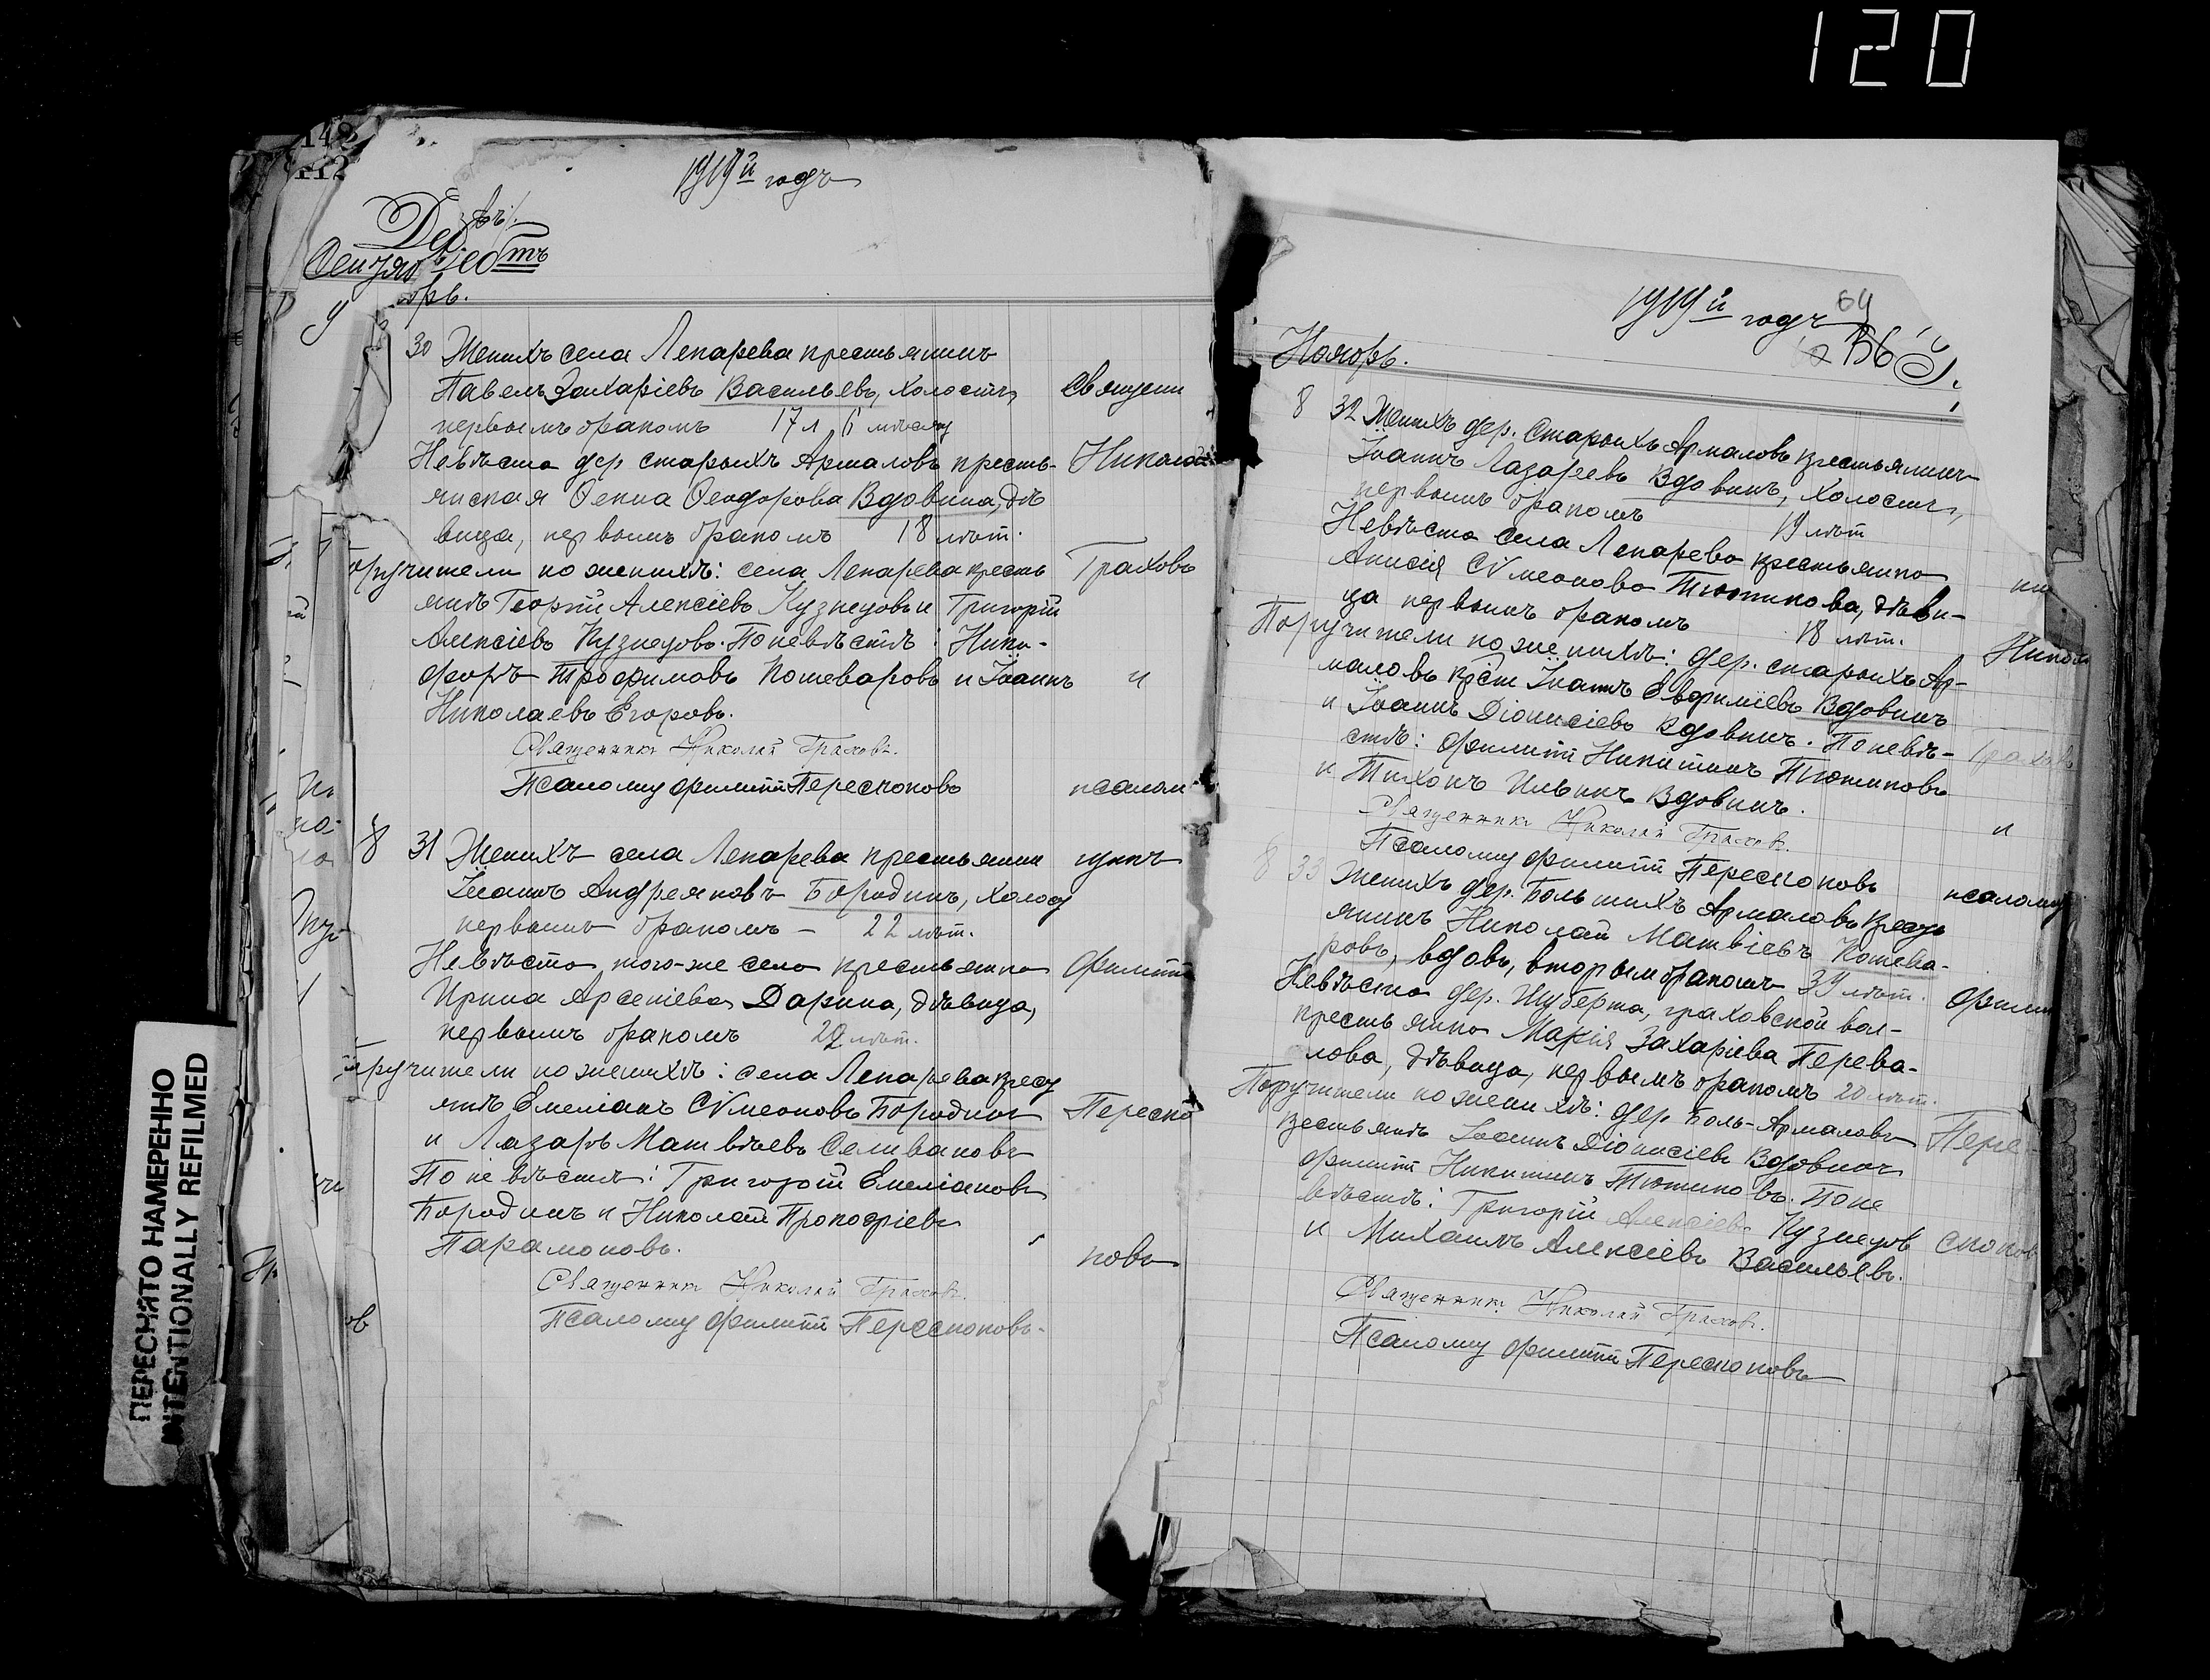 120
148
112
1919й годъ
орь.
30 Женихъ села Лекарева крестьянинъ
Павелъ Захаріевъ Васильевъ, холостъ,
первымъ бракомъ 17 л 6 мѣсяц
Невѣста дер старыхъ Армаловъ кресть-
янская Ѳекла Ѳеодорова Вдовина, дѣ
вица, первымъ бракомъ 18 лѣт.
оручители по женихѣ: села Лекарева кресть
янѣ Георгій Алексіевъ Кузнецовъ и Григорій
Алексіевъ Кузнецовъ. По невѣстѣ: Ники-
форъ Трофимовъ Кошеваровъ и Іоаннъ
Николаевъ Егоровъ.
Священникъ Николай Граховъ.
Псаломщ Филиппъ Перескоковъ
священи
Николай
Граховъ
и
псалом
8 31 Женихъ села Лекарева крестьянин
Іоаннъ Андреяновъ Бородинъ, холос
первымъ бракомъ - 22 лѣт.
Невѣста того-же села крестьянка
Ирина Арсеніева Даркина, дѣвица,
первымъ бракомъ 22 лѣт.
оручители по женихѣ: села Лекарева крес
янѣ Емеліанъ Сѵмеоновъ Бородинъ
и Лазарь Матвѣевъ Селивановъ
По невѣстѣ: Григорій Емеліановъ
Бородинъ и Николай Прокофіевъ
Парамоновъ.
Священникъ Николай Граховъ.
Псаломщ Филиппъ Перескоковъ.
щикъ
Филиппъ
Переско
ковъ
1919й годъ
64
Ноябрь.
8 32 Женихъ дер. Старыхъ Армаловъ крестьянинъ
Іоаннъ Лазаревъ Вдовинъ, холостъ,
первымъ бракомъ 19 лѣт
Невѣста села Лекарева крестьянка
Анисія Сѵмеонова Тютикова, дѣви-
ца первымъ бракомъ 18 лѣт.
Поручители по женихѣ: дер. старыхъ Ар-
маловъ Крест Іоаннъ Евфиміевъ Вдовинъ
и Іоаннъ Діонисіевъ Вдовинъ. По невѣ-
стѣ: Филиппъ Никитинъ Тютиковъ
и Тихонъ Ильинъ Вдовинъ.
Священникъ Николай Граховъ.
Псаломщ Филиппъ Перескоковъ
Никол
Грахов
и
псаломщ
8 33 Женихъ дер. Большихъ Армаловъ Кресть
янинъ Николай Матвіевъ Кошева-
ровъ, вдовъ, вторымъ бракомъ 39 лѣт.
Невѣста дер. граховской вол-
крестьянка Марія Захаріева Перева-
лова, дѣвица, первымъ бракомъ 20 лѣт.
Поручители по женихѣ: дер Боль-Армаловъ
крестьянѣ Іоаннъ Діонисіевъ Вдовинъ
Филиппъ Никитинъ Тютиковъ. По не
вѣстѣ: Григорій Алексіевъ Кузнецов
и Михаилъ Алексіевъ Васильевъ.
Священникъ Николай Граховъ.
Псаломщ Филиппъ Перескоковъ
Филип
Пере-
скоков
ПЕРЕСНЯТО НАМЕРЕННО
INTENTIONALLY REFILMED